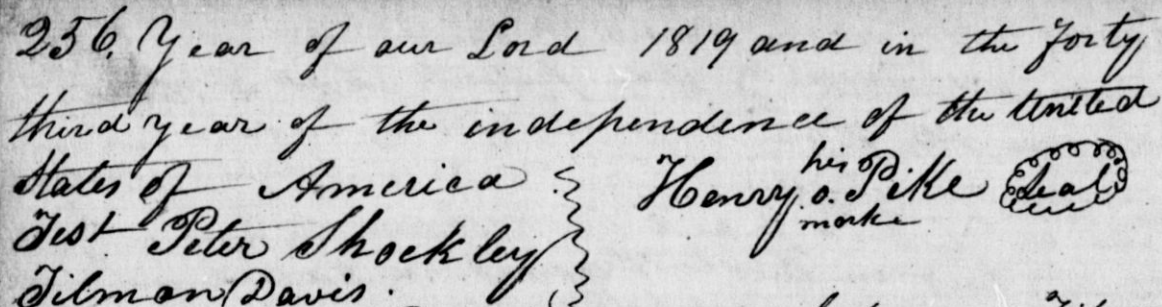 256. Year of our Lord 1819 and in the forty
third year of the independence of the United
States of America
his
Henry .o. Pike Seal
marke
Test Peter Shockley
Tilmon Davis.